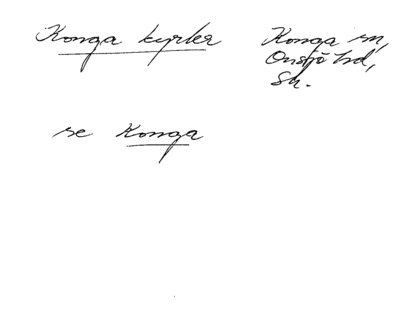 Konga kyrka Konga sn,
Onsjö hd,
Sk.
se Konga